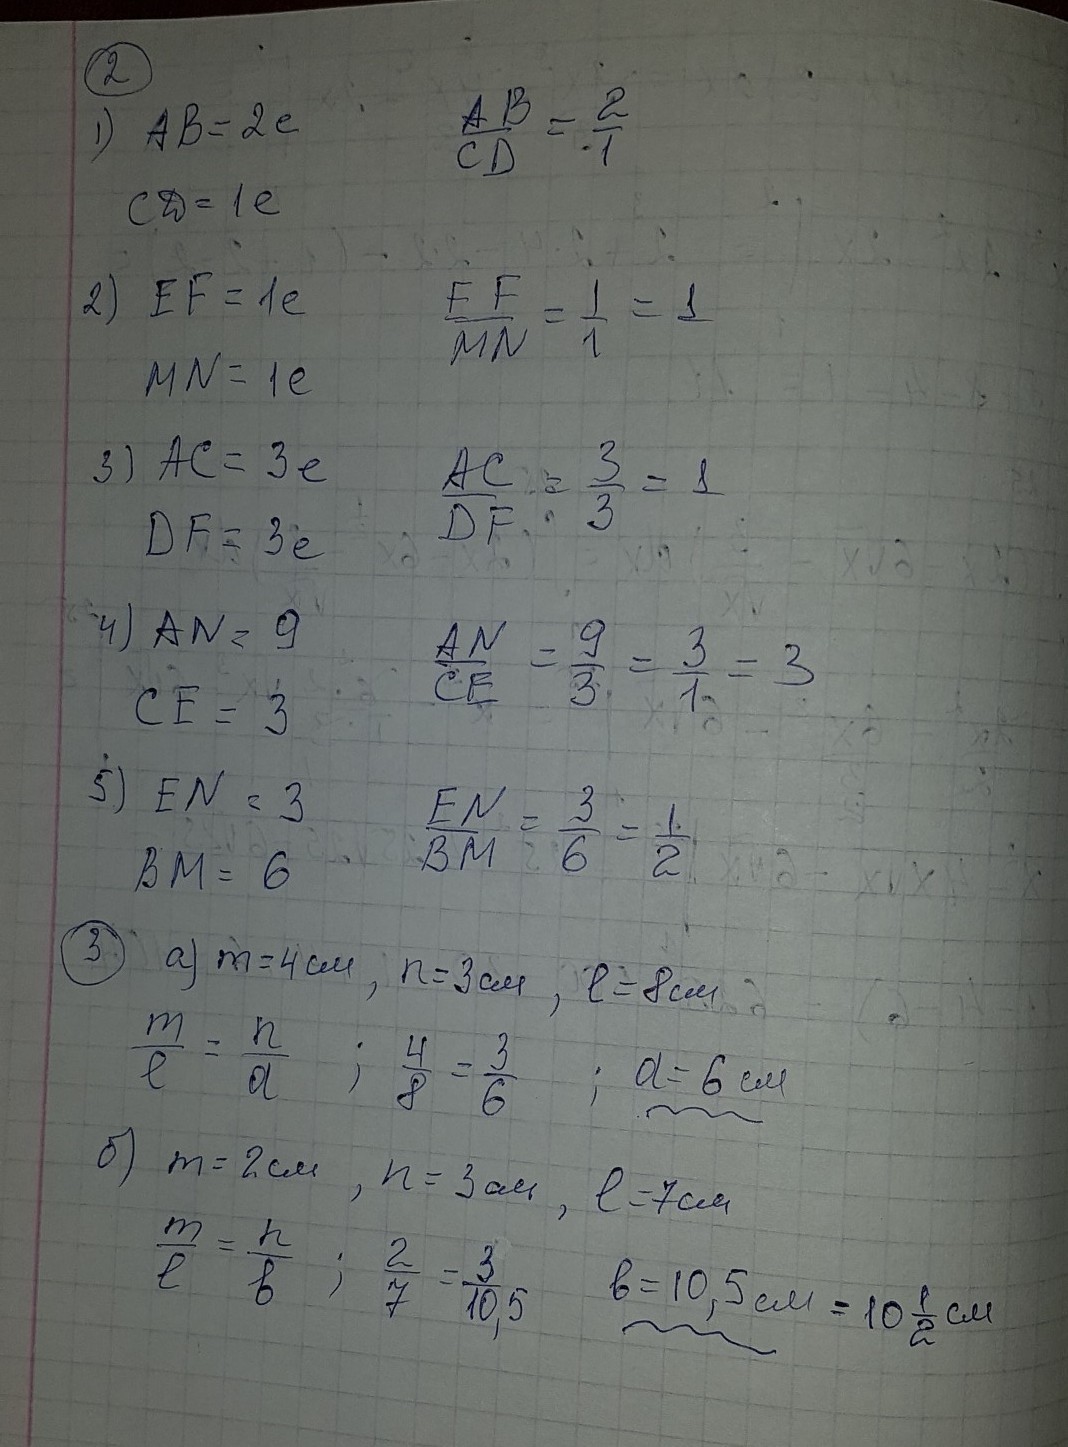 2
1) AB = 2e   AB/CD = 2/1
CD = 1e
2) EF = 1e   EF/MN = 1/1 = 1
MN = 1e
3) AC = 3e   AC/DF = 3/3 = 1
DF = 3e
4) AN = 9   AN/CE = 9/3 = 3/1 = 3
CE = 3
5) EN = 3   EN/BM = 3/6 = 1/2
BM = 6
3   а) m=4см, n=3см, l=8см
m/l = n/a ; 4/8 = 3/6 ; a=6см
б) m=2см, n=3см, l=7см
m/l = n/b ; 2/7 = 3/10,5   b=10,5см = 10 1/2 см